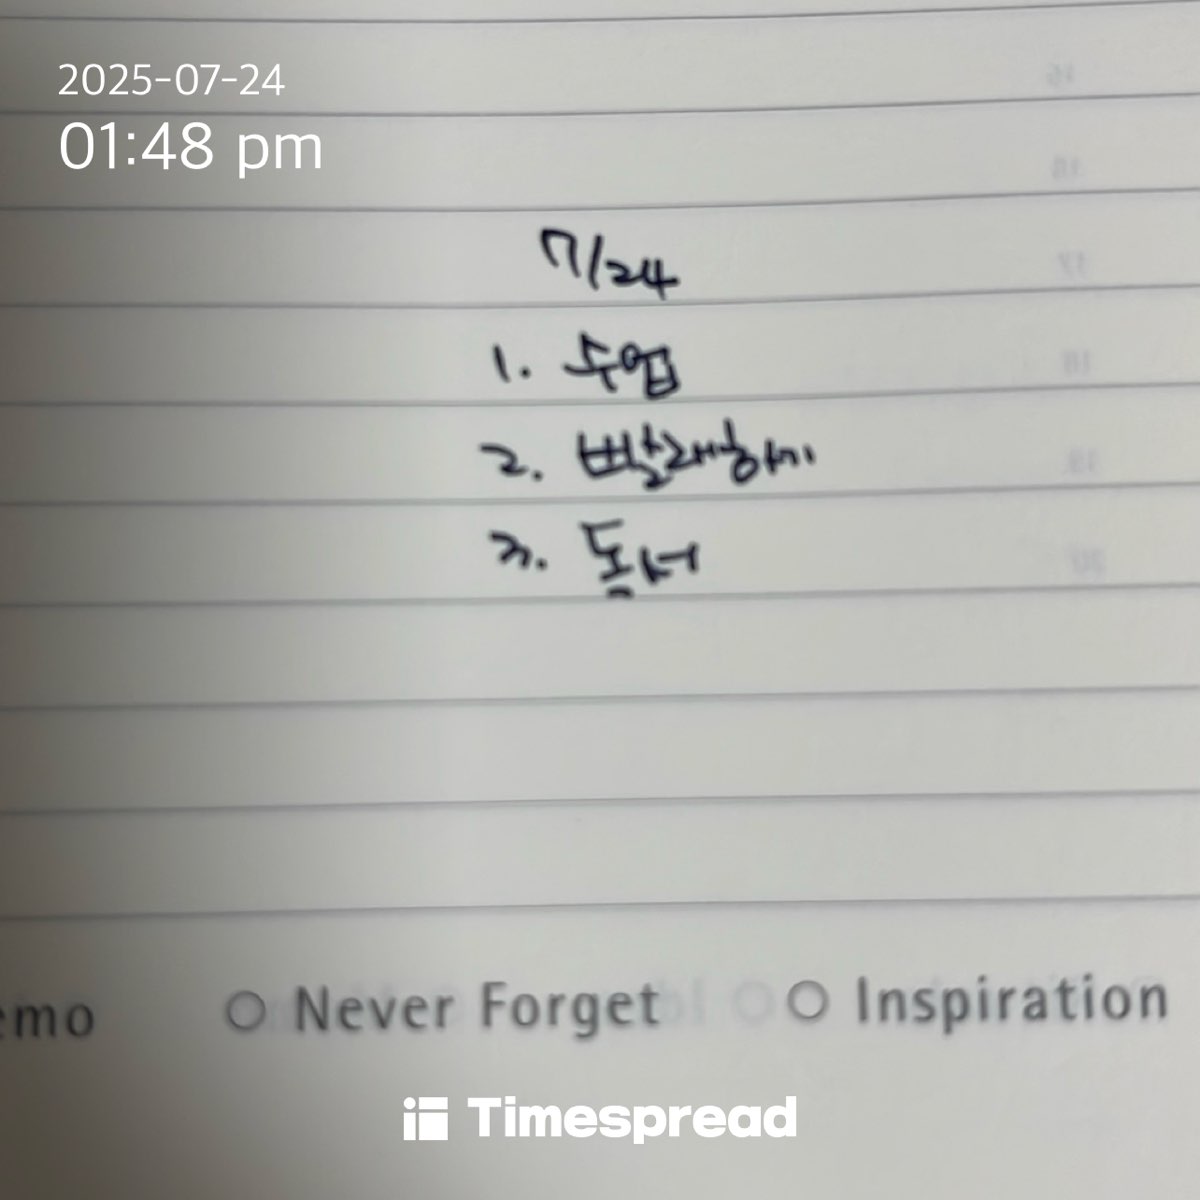 2025-07-24
01:48 pm
16
18
7/24
17
1. 수업
18
2. 빨래하기
19
3. 독서
20
emo ○ Never Forget ○ Inspiration
Timespread